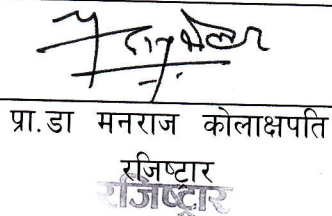 प्रा.डा मनराज कोलाक्षपति
रजिष्ट्रार
रजिष्ट्रार